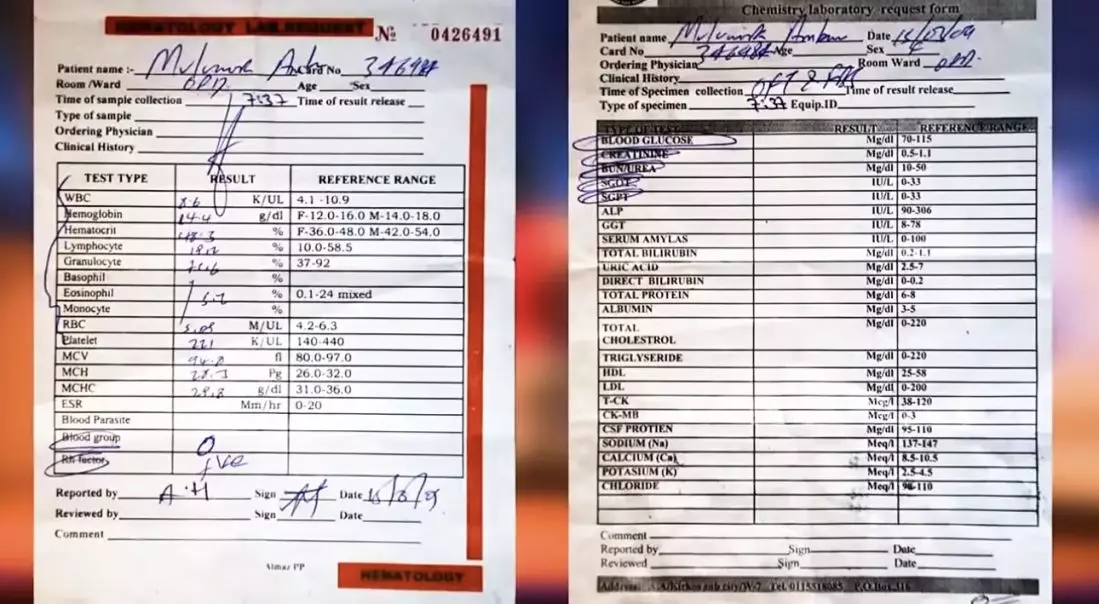 HEMATOLOGY LAB REQUEST № 0426491
Patient name :- Card No 34698
Room /Ward OPD Age Sex
Time of sample collection 7:37 Time of result release
Type of sample
Ordering Physician
Clinical History
TEST TYPE RESULT REFERENCE RANGE
WBC 8.6 K/UL 4.1 -10.9
Hemoglobin 14.4 g/dl F-12.0-16.0 M-14.0-18.0
Hematocrit 48.3 % F-36.0-48.0 M-42.0-54.0
Lymphocyte % 10.0-58.5
Granulocyte % 37-92
Basophil %
Eosinophil 5.2 % 0.1-24 mixed
Monocyte %
RBC M/UL 4.2-6.3
Platelet 221 K/UL 140-440
MCV fl 80.0-97.0
MCH Pg 26.0-32.0
MCHC 29.8 g/dl 31.0-36.0
ESR Mm/hr 0-20
Blood Parasite
Blood group O
Rh factor +ve
Reported by A.H Sign Date
Reviewed by Sign Date
Comment
Almaz PP
HEMATOLOGY
Chemistry laboratory request form
Patient name Date
Card No Age Sex
Ordering Physician Room Ward OPD.
Clinical History
Time of Specimen collection Time of result release
Type of specimen 7:37 Equip.ID
TYPE OF TEST RESULT REFERENCE RANGE
BLOOD GLUCOSE Mg/dl 70-115
CREATININE Mg/dl 0.5-1.1
BUN/UREA Mg/dl 10-50
SGOT IU/L 0-33
SGPT IU/L 0-33
ALP IU/L 90-306
GGT IU/L 8-78
SERUM AMYLAS IU/L 0-100
TOTAL BILIRUBIN Mg/dl 0.2-1.1
URIC ACID Mg/dl 2.5-7
DIRECT BILIRUBIN Mg/dl 0-0.2
TOTAL PROTEIN Mg/dl 6-8
ALBUMIN Mg/dl 3-5
TOTAL CHOLESTROL Mg/dl 0-220
TRIGLYSERIDE Mg/dl 0-220
HDL Mg/dl 25-58
LDL Mg/dl 0-200
T-CK Mcg/l 38-120
CK-MB Mcg/l 0-3
CSF PROTIEN Mg/dl 95-110
SODIUM (Na) Meq/l 137-147
CALCIUM (Ca) Meq/l 8.5-10.5
POTASIUM (K) Meq/l 2.5-4.5
CHLORIDE Meq/l 98-110
Comment
Reported by Sign Date
Reviewed Sign Date
Address: A.A/Kirkos sub city/W-7 Tel. 0115518085 P.O.Box 316